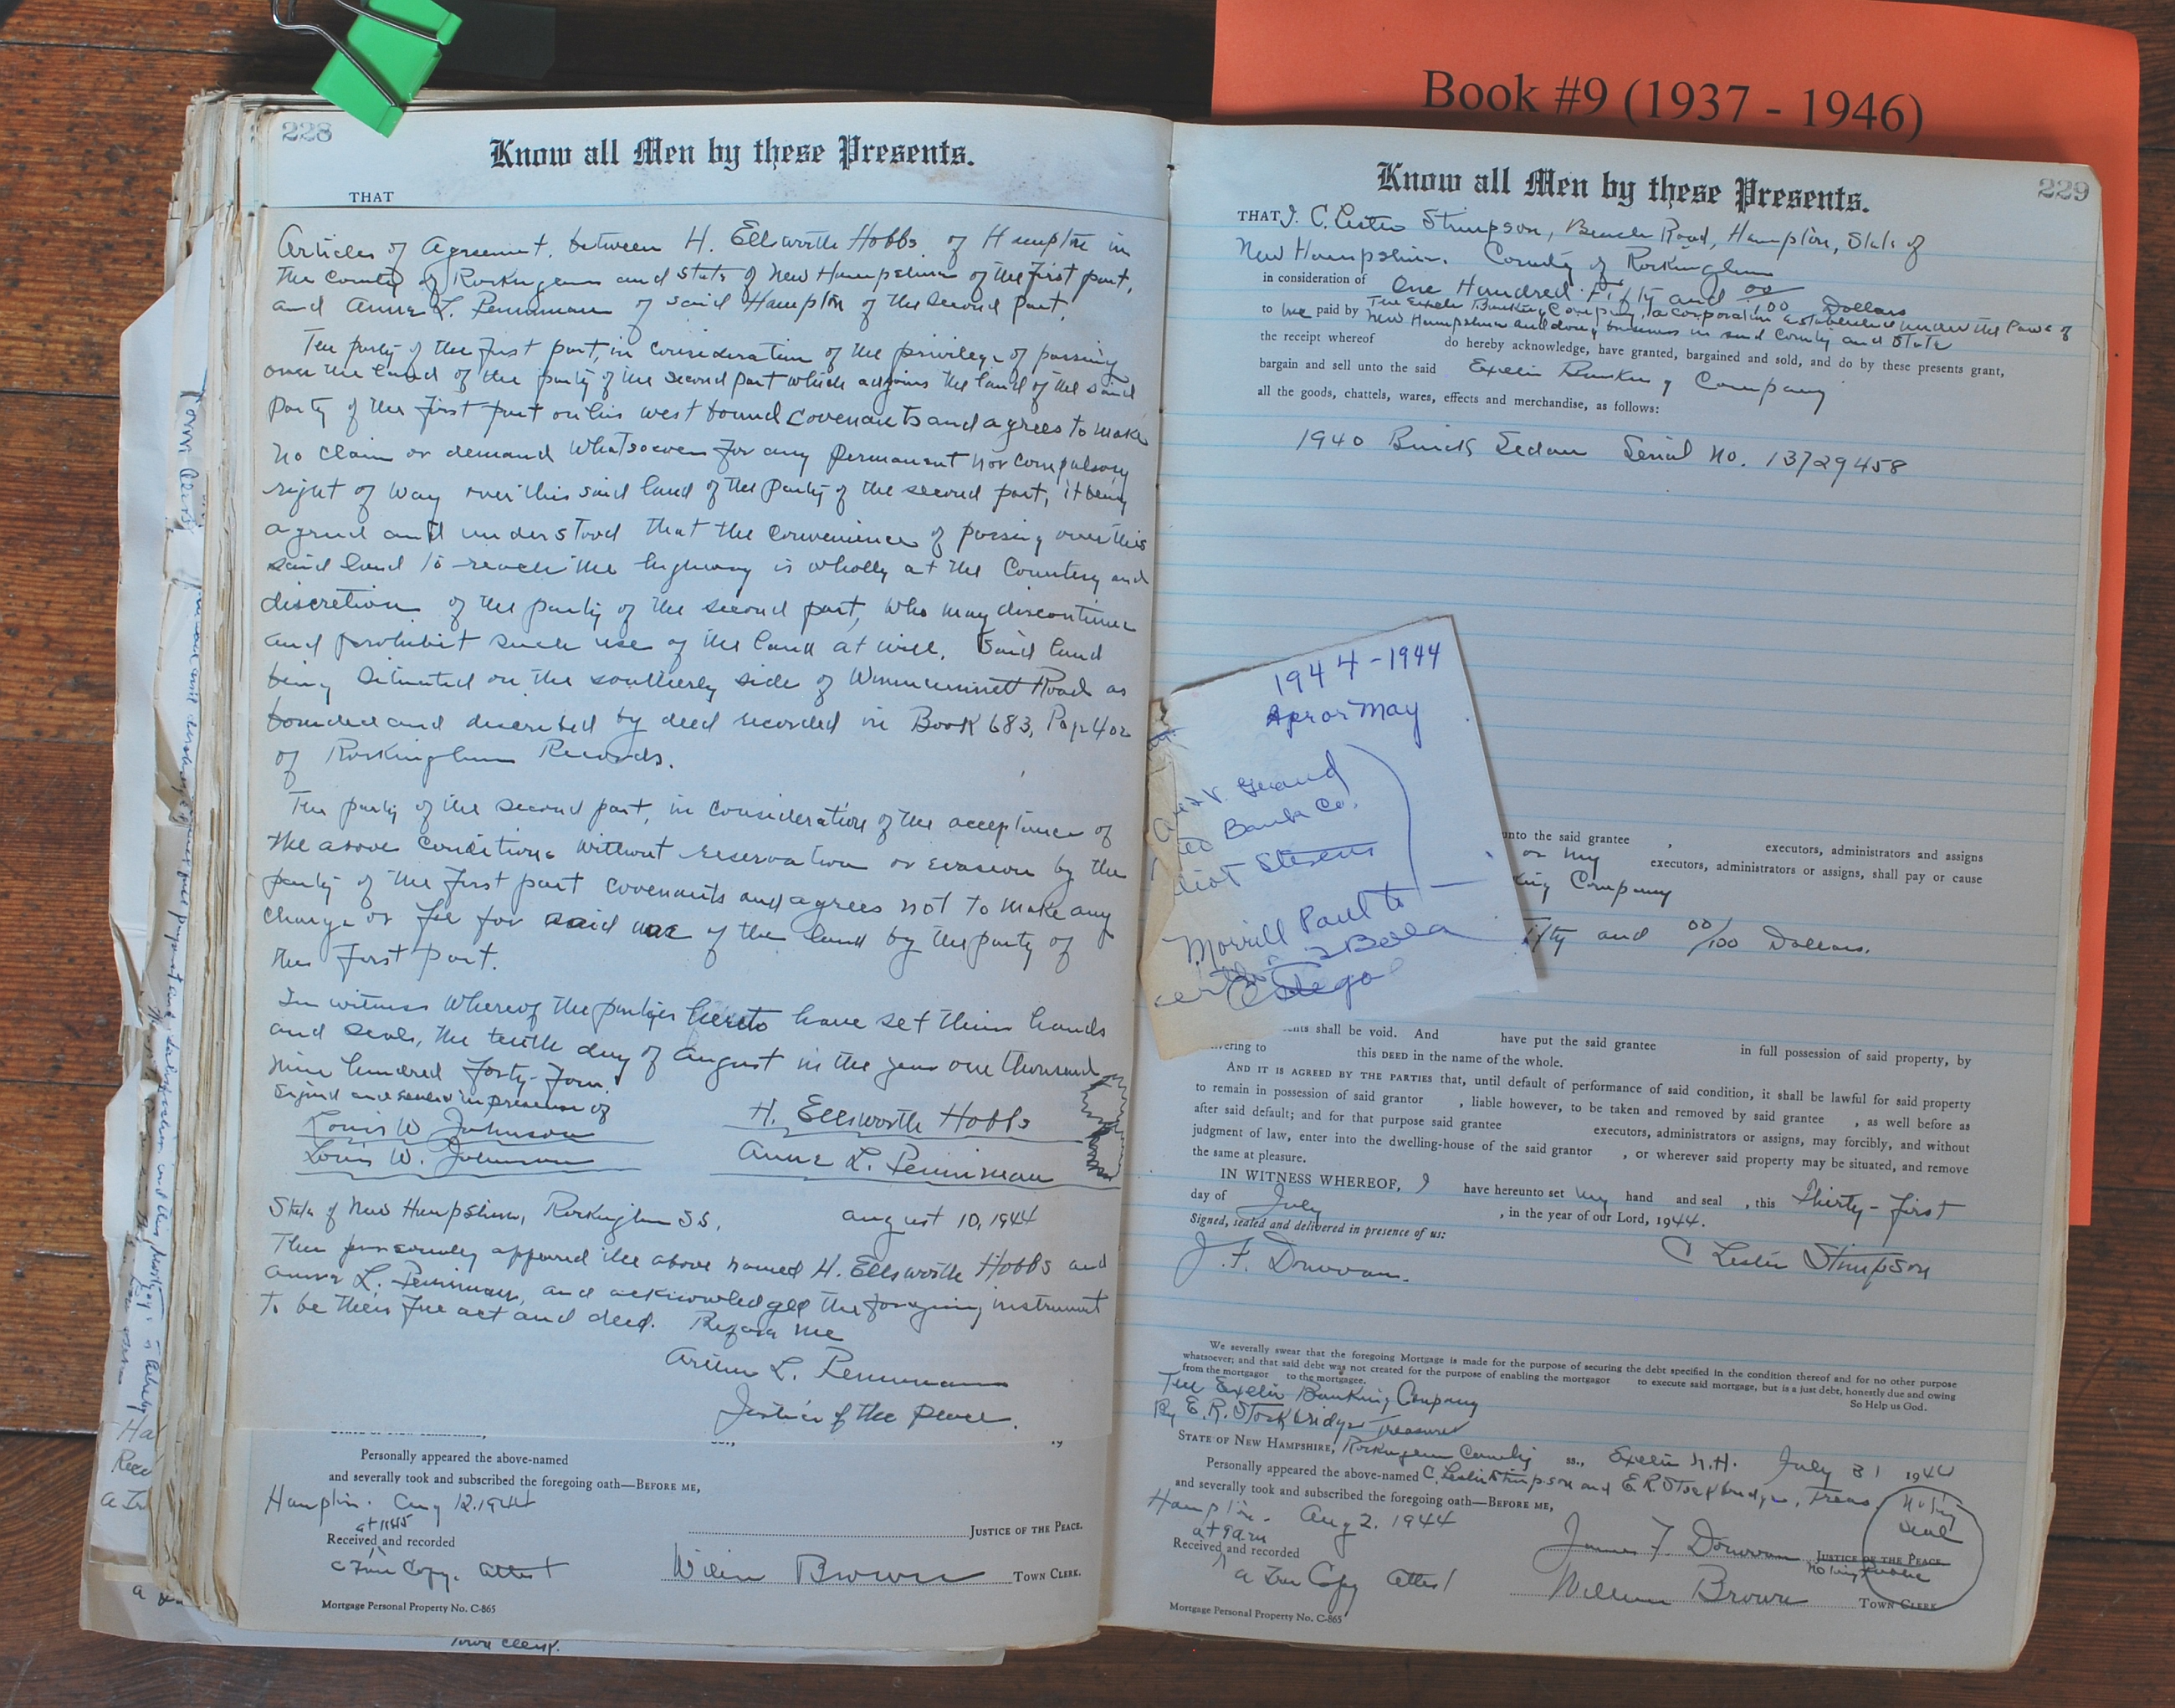 Book #9 (1937 - 1946)
228
Know all Men by these Presents.
THAT
Articles of Agreement, between H. Ellsworth Hobbs of Hampton in
the County of Rockingham and State of New Hampshire of the first part,
and Anna L. Penniman of said Hampton of the second part.
The party of the first part, in consideration of the privilege of passing
over the land of the party of the second part which adjoins the land of the said
party of the first part on his west bound covenants and agrees to make
no claim or demand whatsoever for any permanent nor compulsory
right of way over this said land of the party of the second part, it being
agreed and understood that the convenience of passing over this
said land to reach the highway is wholly at the Courtesy and
discretion of the party of the second part, who may discontinue
and prohibit such use of the land at will. Said land
being situated on the southerly side of Winnacunnett Road as
bounded and described by deed recorded in Book 683, Page 402
of Rockingham Records.
The party of the second part, in consideration of the acceptance of
the above conditions without reservation or evasion by the
party of the first part covenants and agrees not to make any
charge or fee for said use of the land by the party of
the first part.
In witness whereof the parties hereto have set their hands
and seals, the tenth day of August in the year one thousand
nine hundred forty-four.
Signed and sealed in presence of
Louis W. Johnson H. Ellsworth Hobbs
Louis W. Johnson Anna L. Penniman
State of New Hampshire, Rockingham SS. August 10, 1944
Then personally appeared the above named H. Ellsworth Hobbs and
Anna L. Penniman, and acknowledged the foregoing instrument
to be their free act and deed. Before me
L. Penniman
Justice of the Peace.
Personally appeared the above-named
and severally took and subscribed the foregoing oath—BEFORE ME,
Hampton. Aug 12. 1944
JUSTICE OF THE PEACE.
Received and recorded
a True Copy. Attest Brown TOWN CLERK.
Mortgage Personal Property No. C-865
Town Clerk.
229
Know all Men by these Presents.
THAT I, C. Lester Stimpson, Beach Road, Hampton, State of
New Hampshire. County of Rockingham
in consideration of One Hundred Fifty and 00/100 Dollars
to me paid by The Exeter Banking Company, a corporation established under the laws of
New Hampshire and doing business in said County and State
the receipt whereof do hereby acknowledge, have granted, bargained and sold, and do by these presents grant,
bargain and sell unto the said Exeter Banking Company
all the goods, chattels, wares, effects and merchandise, as follows:
1940 Buick Sedan Serial No. 13729458
1944-1944
Apr or May
Bank Co.
Stevens
Morrill Paul to
unto the said grantee , executors, administrators and assigns
or my executors, administrators or assigns, shall pay or cause
king Company
Fifty and 00/100 Dollars.
shall be void. And have put the said grantee in full possession of said property, by
this DEED in the name of the whole.
AND IT IS AGREED BY THE PARTIES that, until default of performance of said condition, it shall be lawful for said property
to remain in possession of said grantor , liable however, to be taken and removed by said grantee , as well before as
after said default; and for that purpose said grantee executors, administrators or assigns, may forcibly, and without
judgment of law, enter into the dwelling-house of the said grantor , or wherever said property may be situated, and remove
the same at pleasure.
IN WITNESS WHEREOF, I have hereunto set my hand and seal , this Thirty-first
day of July , in the year of our Lord, 1944.
Signed, sealed and delivered in presence of us:
J. F. Donovan. C Lester Stimpson
We severally swear that the foregoing Mortgage is made for the purpose of securing the debt specified in the condition thereof and for no other purpose
whatsoever; and that said debt was not created for the purpose of enabling the mortgagor to execute said mortgage, but is a just debt, honestly due and owing
from the mortgagor to the mortgagee. So Help us God.
The Exeter Banking Company
By E. R. Stockbridge Treasurer
STATE OF NEW HAMPSHIRE, Rockingham County ss., Exeter N.H. July 31 1944
Personally appeared the above-named C. Lester Stimpson and E R Stockbridge, Treas.
and severally took and subscribed the foregoing oath—BEFORE ME,
Notary
Seal
Hampton. Aug 2. 1944
at 9 am
James F Donovan JUSTICE OF THE PEACE.
Notary Public
Received and recorded
a True Copy Attest William Brown TOWN CLERK
Mortgage Personal Property No. C-865